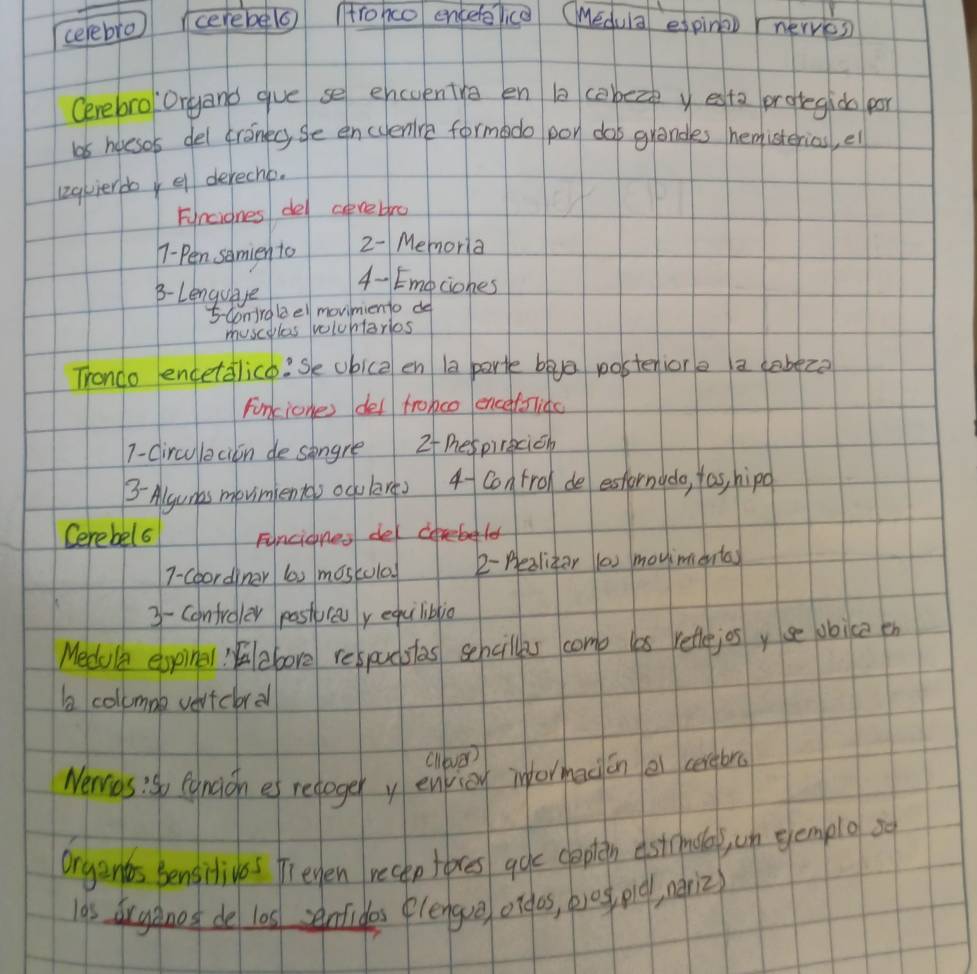 cerebro cerebelo tronco encefálico Médula espinal nervios
Cerebro: Organo que se encuentra en la cabeza y esta protegido por
los huesos del cráneo, se encuentra formado por dos grandes hemisferios, el
izquierdo y el derecho.
Funciones del cerebro
1-Pensamiento 2- Memoria
3-Lenguaje 4-Emociones
5-Controla el movimiento de
musculos voluntarios
Tronco encefálico: Se ubica en la parte baja posterior a la cabeza
Funciones del tronco encefálico
1-Circulación de sangre 2-Respiración
3-Algunos movimientos oculares 4-Control de estornudo, tos, hipo
Cerebelo Funciones del cerebelo
1-Coordinar los músculos 2-Realizar los movimientos
3-Controlar posturas y equilibrio
Medula espinal: Elabora respuestas sencillas como los reflejos y se ubica en
la columna vertebral
(llevar)
Nervios: Su función es recoger y enviar información al cerebro
Organos Sensitivos Tienen receptores que captan estimulos, un ejemplo so
los órganos de los sentidos (lengua, oídos, ojos, piel, nariz)